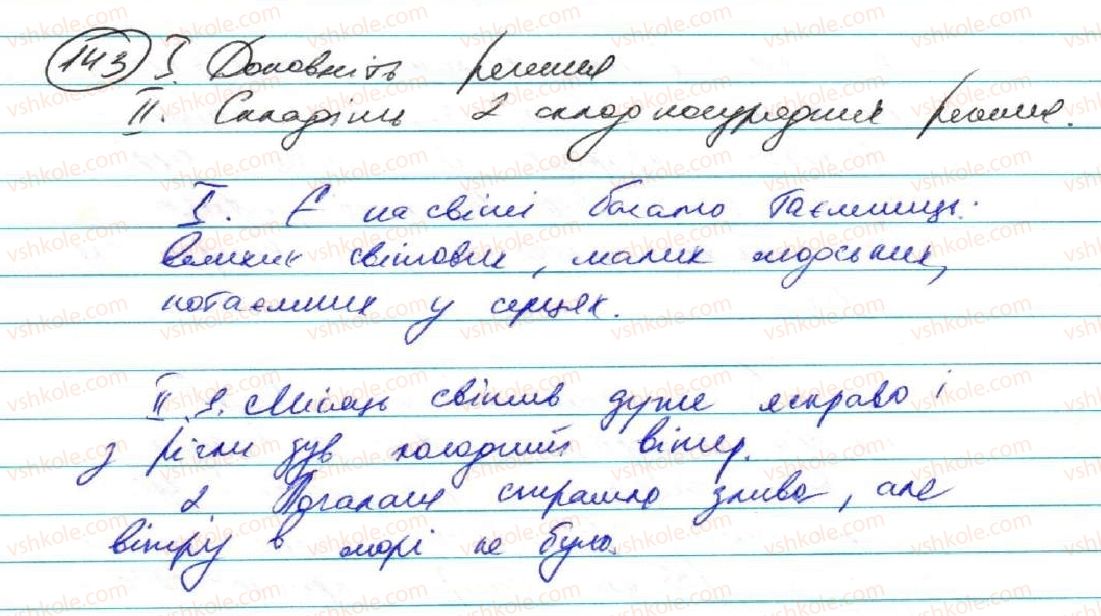 143 I. Доповніть речення
II. Складіть 2 складносурядних речення.
I. Є на світі багато таємниць:
великих світових, малих людських,
потаємних у серцях.
II 1. Місяць світив дуже яскраво і
з річки дув холодний вітер.
2. Почалась страшна злива, але
вітру в морі не було.